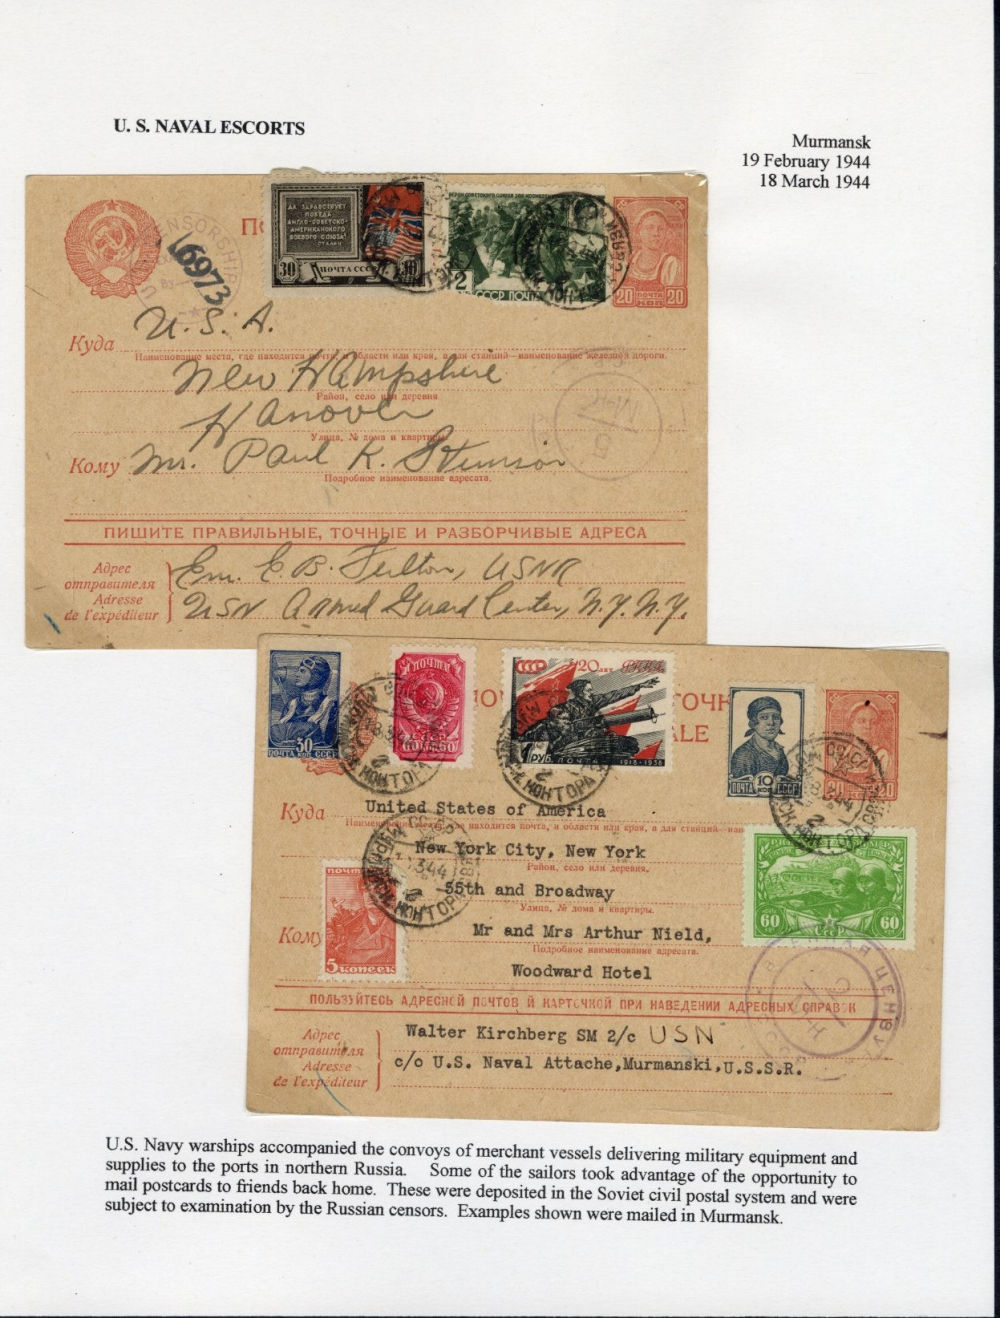 U. S. NAVAL ESCORTS
Murmansk
19 February 1944
18 March 1944
ДА ЗДРАВСТВУЕТ
ПОБЕДА
АНГЛО-СОВЕТСКО-
АМЕРИКАНСКОГО
БОЕВОГО СОЮЗА!
СТАЛИН
30 ПОЧТА СССР 30
СССР ПОЧТА
20 ПОЧТА 20
КОП
CENSORSHIP
By
16973
Куда U. S. A.
Наименование места, где находится почта, и области или края, а для станций—наименование железной дороги.
New Hampshire
Район, село или деревня
Hanover
Улица, № дома и квартиры
Кому Mr. Paul K. Stimson
Подробное наименование адресата.
ПИШИТЕ ПРАВИЛЬНЫЕ, ТОЧНЫЕ И РАЗБОРЧИВЫЕ АДРЕСА
Адрес
отправителя
Adresse
de l'expéditeur
Em. E. B. Fulton, USNR
USN Armed Guard Center, N.Y. N.Y.
30
ПОЧТА КОП. СССР
ПОЧТА
60 КОП 60
СССР
20 ЛЕТ РККА
1 РУБ. ПОЧТА 1918-1938
10 КОП
ПОЧТА СССР
20 20
ТОЧК
ALE
Куда United States of America
Наименование места, где находится почта, и области или края, а для станций—наи
New York City, New York
Район, село или деревня.
55th and Broadway
Улица, № дома и квартиры.
ПОЧТА
5 КОПЕЕК
60 СССР 60
Кому Mr and Mrs Arthur Nield,
Подробное наименование адресата.
Woodward Hotel
ПОЛЬЗУЙТЕСЬ АДРЕСНОЙ ПОЧТОВОЙ КАРТОЧКОЙ ПРИ НАВЕДЕНИИ АДРЕСНЫХ СПРАВОК
Адрес
отправителя
Adresse
de l'expéditeur
Walter Kirchberg SM 2/c USN
c/o U.S. Naval Attache,Murmanski,U.S.S.R.
U.S. Navy warships accompanied the convoys of merchant vessels delivering military equipment and
supplies to the ports in northern Russia. Some of the sailors took advantage of the opportunity to
mail postcards to friends back home. These were deposited in the Soviet civil postal system and were
subject to examination by the Russian censors. Examples shown were mailed in Murmansk.